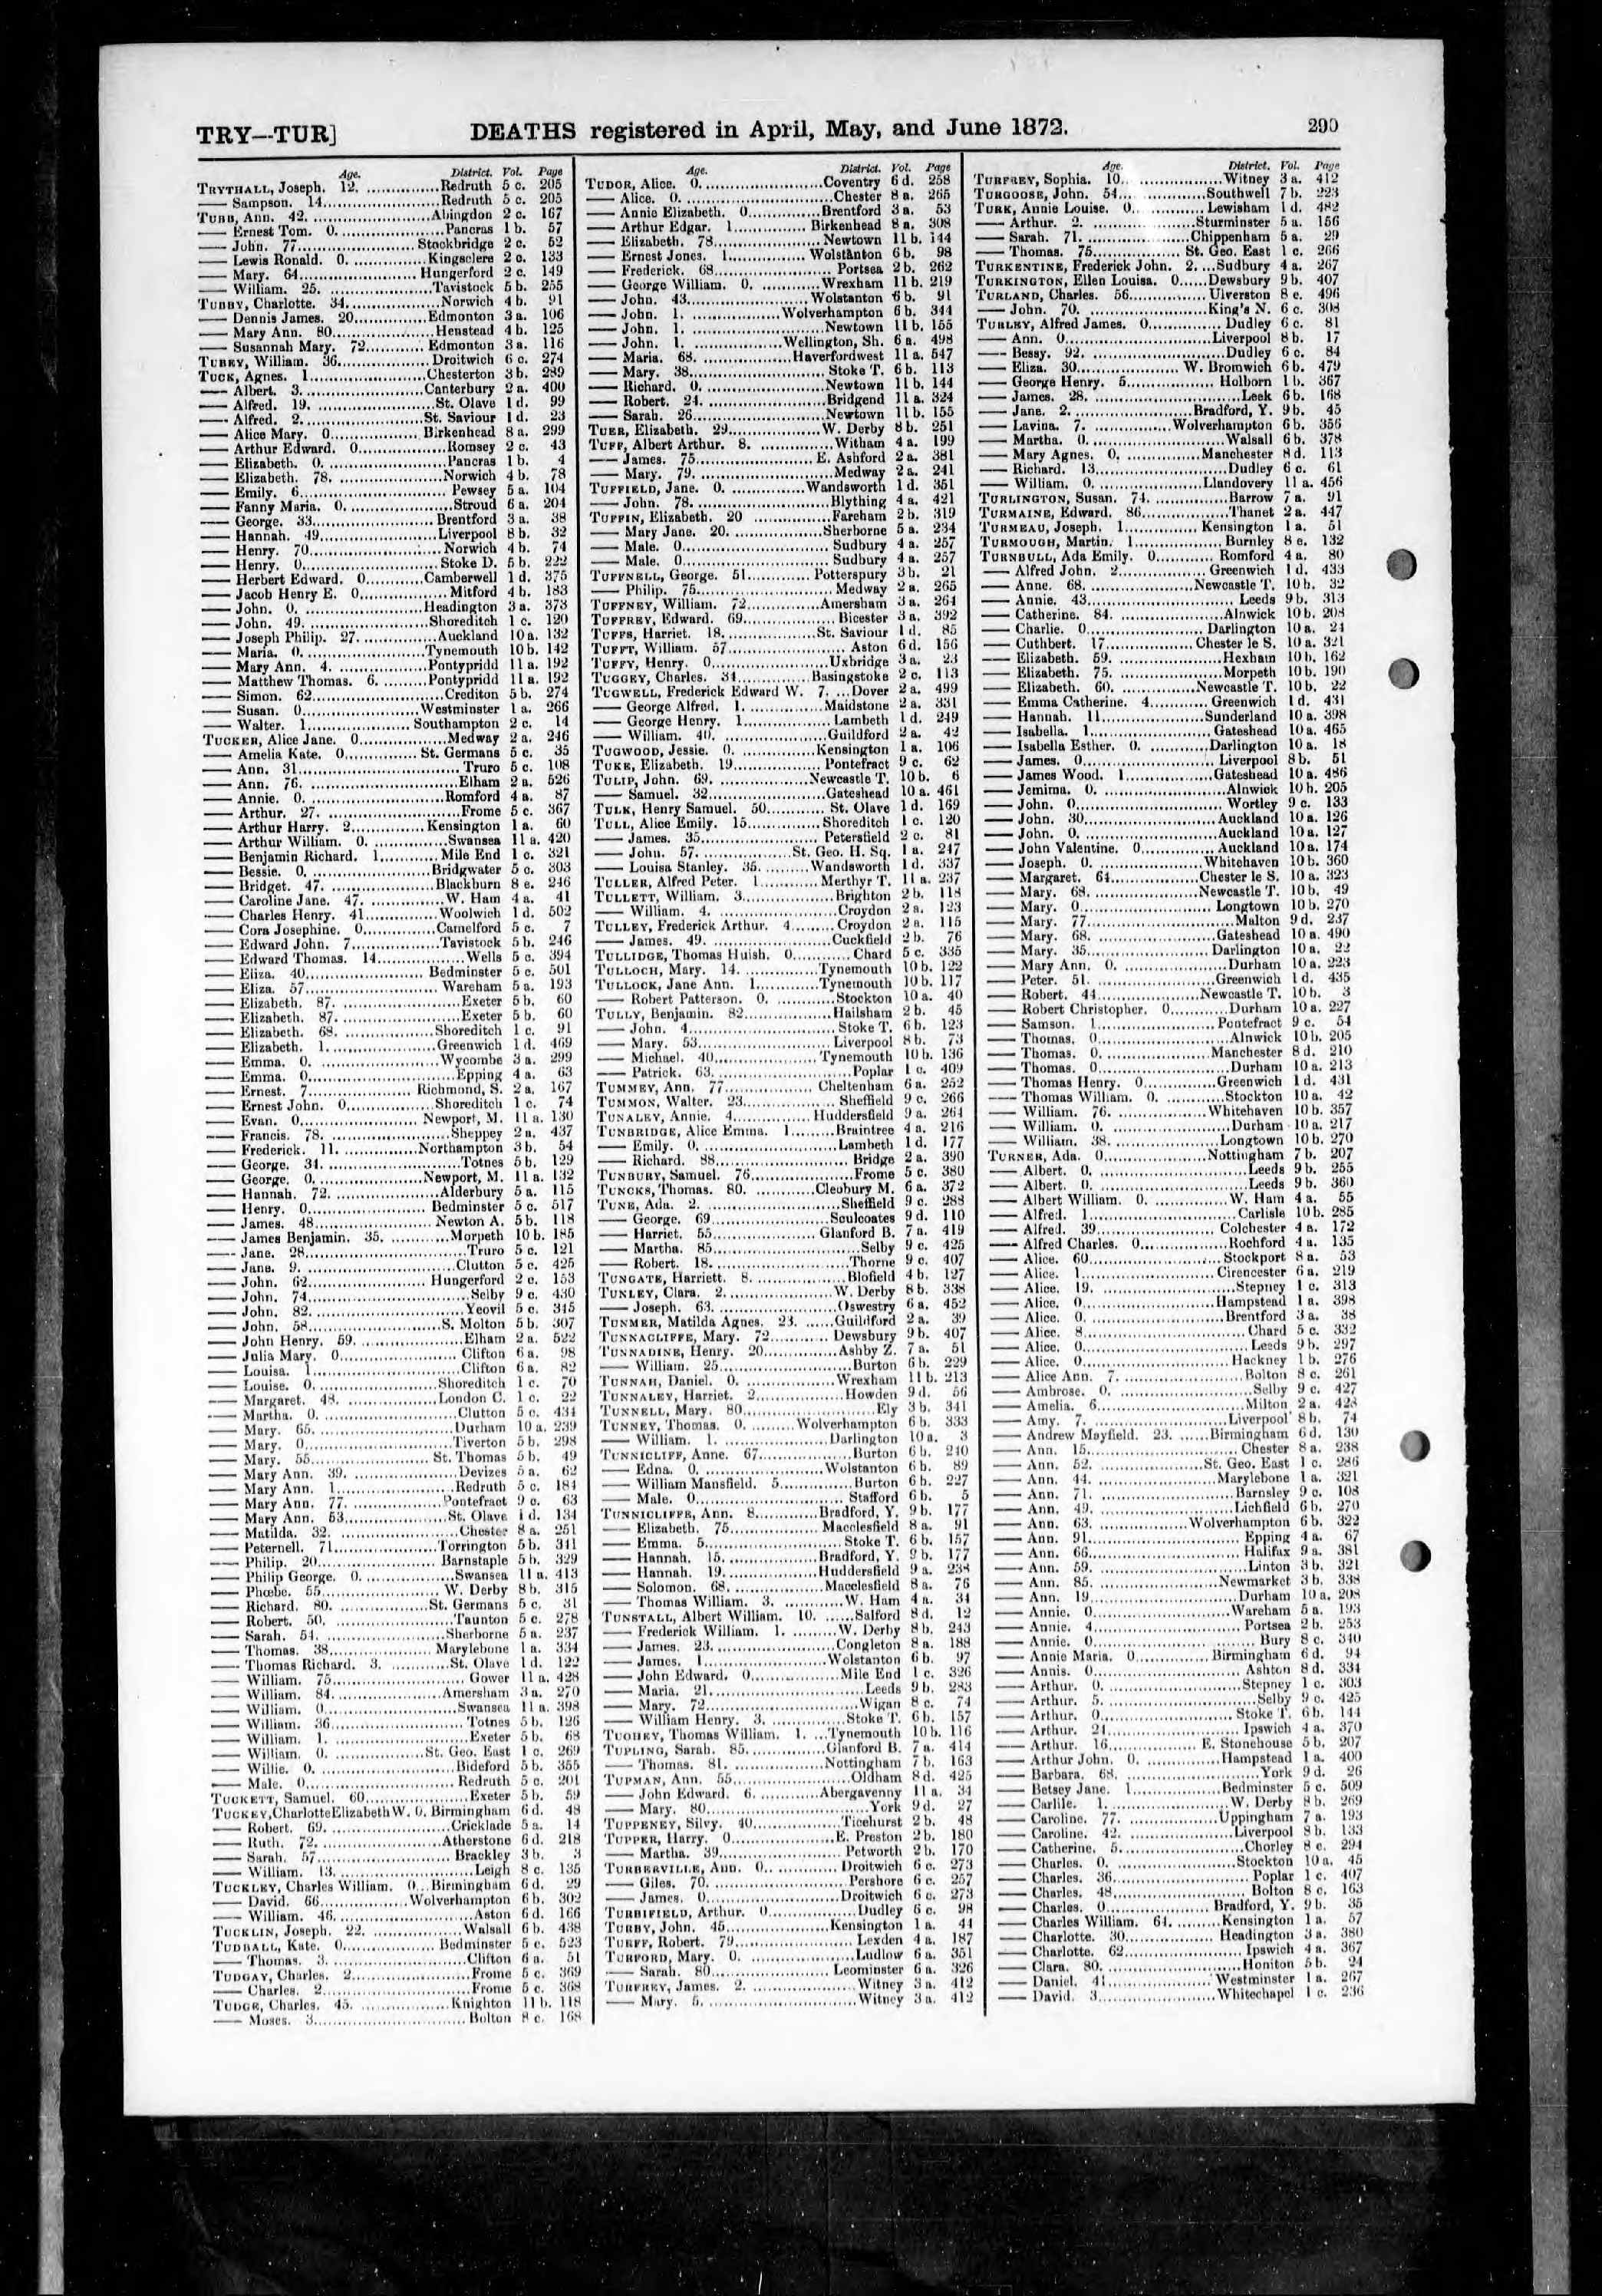 TRY—TUR]
DEATHS registered in April, May, and June 1872.
290
Age. District. Vol. Page
TRYTHALL, Joseph. 12. Redruth 5 c. 205
— Sampson. 14. Redruth 5 c. 205
TUBB, Ann. 42. Abingdon 2 c. 167
— Ernest Tom. 0. Pancras 1 b. 57
— John. 77. Stockbridge 2 c. 52
— Lewis Ronald. 0. Kingsclere 2 c. 133
— Mary. 64. Hungerford 2 c. 149
— William. 25. Tavistock 5 b. 255
TUBBY, Charlotte. 34. Norwich 4 b. 91
— Dennis James. 20. Edmonton 3 a. 106
— Mary Ann. 80. Henstead 4 b. 125
— Susannah Mary. 72. Edmonton 3 a. 116
TUBEY, William. 36. Droitwich 6 c. 274
TUCK, Agnes. 1. Chesterton 3 b. 289
— Albert. 3. Canterbury 2 a. 400
— Alfred. 19. St. Olave 1 d. 99
— Alfred. 2. St. Saviour 1 d. 23
— Alice Mary. 0. Birkenhead 8 a. 299
— Arthur Edward. 0. Romsey 2 c. 43
— Elizabeth. 0. Pancras 1 b. 4
— Elizabeth. 78. Norwich 4 b. 78
— Emily. 6. Pewsey 5 a. 104
— Fanny Maria. 0. Stroud 6 a. 204
— George. 33. Brentford 3 a. 38
— Hannah. 49. Liverpool 8 b. 32
— Henry. 70. Norwich 4 b. 74
— Henry. 0. Stoke D. 5 b. 222
— Herbert Edward. 0. Camberwell 1 d. 375
— Jacob Henry E. 0. Mitford 4 b. 183
— John. 0. Headington 3 a. 373
— John. 49. Shoreditch 1 c. 120
— Joseph Philip. 27. Auckland 10 a. 132
— Maria. 0. Tynemouth 10 b. 142
— Mary Ann. 4. Pontypridd 11 a. 192
— Matthew Thomas. 6. Pontypridd 11 a. 192
— Simon. 62. Crediton 5 b. 274
— Susan. 0. Westminster 1 a. 266
— Walter. 1. Southampton 2 c. 14
TUCKER, Alice Jane. 0. Medway 2 a. 246
— Amelia Kate. 0. St. Germans 5 c. 35
— Ann. 31. Truro 5 c. 108
— Ann. 76. Elham 2 a. 526
— Annie. 0. Romford 4 a. 87
— Arthur. 27. Frome 5 c. 367
— Arthur Harry. 2. Kensington 1 a. 60
— Arthur William. 0. Swansea 11 a. 420
— Benjamin Richard. 1. Mile End 1 c. 321
— Bessie. 0. Bridgwater 5 c. 303
— Bridget. 47. Blackburn 8 e. 246
— Caroline Jane. 47. W. Ham 4 a. 41
— Charles Henry. 41. Woolwich 1 d. 502
— Cora Josephine. 0. Camelford 5 c. 7
— Edward John. 7. Tavistock 5 b. 246
— Edward Thomas. 14. Wells 5 c. 394
— Eliza. 40. Bedminster 5 c. 501
— Eliza. 57. Wareham 5 a. 193
— Elizabeth. 87. Exeter 5 b. 60
— Elizabeth. 87. Exeter 5 b. 60
— Elizabeth. 68. Shoreditch 1 c. 91
— Elizabeth. 1. Greenwich 1 d. 469
— Emma. 0. Wycombe 3 a. 299
— Emma. 0. Epping 4 a. 63
— Ernest. 7. Richmond, S. 2 a. 167
— Ernest John. 0. Shoreditch 1 c. 74
— Evan. 0. Newport, M. 11 a. 130
— Francis. 78. Sheppey 2 a. 437
— Frederick. 11. Northampton 3 b. 54
— George. 34. Totnes 5 b. 129
— George. 0. Newport, M. 11 a. 132
— Hannah. 72. Alderbury 5 a. 115
— Henry. 0. Bedminster 5 c. 517
— James. 48. Newton A. 5 b. 118
— James Benjamin. 35. Morpeth 10 b. 185
— Jane. 28. Truro 5 c. 121
— Jane. 9. Clutton 5 c. 425
— John. 62. Hungerford 2 c. 153
— John. 74. Selby 9 c. 430
— John. 82. Yeovil 5 c. 345
— John. 58. S. Molton 5 b. 307
— John Henry. 59. Elham 2 a. 522
— Julia Mary. 0. Clifton 6 a. 98
— Louisa. 1. Clifton 6 a. 82
— Louise. 0. Shoreditch 1 c. 70
— Margaret. 48. London C. 1 c. 22
— Martha. 0. Clutton 5 c. 434
— Mary. 65. Durham 10 a. 239
— Mary. 0. Tiverton 5 b. 298
— Mary. 55. St. Thomas 5 b. 49
— Mary Ann. 39. Devizes 5 a. 62
— Mary Ann. 1. Redruth 5 c. 184
— Mary Ann. 77. Pontefract 9 c. 63
— Mary Ann. 53. St. Olave 1 d. 134
— Matilda. 32. Chester 8 a. 251
— Peternell. 71. Torrington 5 b. 341
— Philip. 20. Barnstaple 5 b. 329
— Philip George. 0. Swansea 11 a. 413
— Phœbe. 55. W. Derby 8 b. 315
— Richard. 80. St. Germans 5 c. 31
— Robert. 50. Taunton 5 c. 278
— Sarah. 54. Sherborne 5 a. 237
— Thomas. 38. Marylebone 1 a. 334
— Thomas Richard. 3. St. Olave 1 d. 122
— William. 75. Gower 11 a. 428
— William. 84. Amersham 3 a. 270
— William. 0. Swansea 11 a. 398
— William. 36. Totnes 5 b. 126
— William. 1. Exeter 5 b. 68
— William. 0. St. Geo. East 1 c. 269
— Willie. 0. Bideford 5 b. 355
— Male. 0. Redruth 5 c. 201
TUCKETT, Samuel. 60. Exeter 5 b. 59
TUCKEY, Charlotte Elizabeth W. 0. Birmingham 6 d. 48
— Robert. 69. Cricklade 5 a. 14
— Ruth. 72. Atherstone 6 d. 218
— Sarah. 57. Brackley 3 b. 3
— William. 13. Leigh 8 c. 135
TUCKLEY, Charles William. 0. Birmingham 6 d. 29
— David. 66. Wolverhampton 6 b. 302
— William. 46. Aston 6 d. 166
TUCKLIN, Joseph. 22. Walsall 6 b. 438
TUDBALL, Kate. 0. Bedminster 5 c. 523
— Thomas. 3. Clifton 6 a. 51
TUDGAY, Charles. 2. Frome 5 c. 369
— Charles. 2. Frome 5 c. 368
TUDGE, Charles. 45. Knighton 11 b. 118
— Moses. 3. Bolton 8 c. 168
Age. District. Vol. Page
TUDOR, Alice. 0. Coventry 6 d. 258
— Alice. 0. Chester 8 a. 265
— Annie Elizabeth. 0. Brentford 3 a. 53
— Arthur Edgar. 1. Birkenhead 8 a. 308
— Elizabeth. 78. Newtown 11 b. 144
— Ernest Jones. 1. Wolstanton 6 b. 98
— Frederick. 68. Portsea 2 b. 262
— George William. 0. Wrexham 11 b. 219
— John. 43. Wolstanton 6 b. 91
— John. 1. Wolverhampton 6 b. 344
— John. 1. Newtown 11 b. 155
— John. 1. Wellington, Sh. 6 a. 498
— Maria. 68. Haverfordwest 11 a. 547
— Mary. 38. Stoke T. 6 b. 113
— Richard. 0. Newtown 11 b. 144
— Robert. 24. Bridgend 11 a. 324
— Sarah. 26. Newtown 11 b. 155
TUER, Elizabeth. 29. W. Derby 8 b. 251
TUFF, Albert Arthur. 8. Witham 4 a. 199
— James. 75. E. Ashford 2 a. 381
— Mary. 79. Medway 2 a. 241
TUFFIELD, Jane. 0. Wandsworth 1 d. 351
— John. 78. Blything 4 a. 421
TUFFIN, Elizabeth. 20 Fareham 2 b. 319
— Mary Jane. 20. Sherborne 5 a. 234
— Male. 0. Sudbury 4 a. 257
— Male. 0. Sudbury 4 a. 257
TUFFNELL, George. 51. Potterspury 3 b. 21
— Philip. 75. Medway 2 a. 265
TUFFNEY, William. 72. Amersham 3 a. 264
TUFFREY, Edward. 69. Bicester 3 a. 392
TUFFS, Harriet. 18. St. Saviour 1 d. 85
TUFFT, William. 57. Aston 6 d. 156
TUFFY, Henry. 0. Uxbridge 3 a. 23
TUGGEY, Charles. 34. Basingstoke 2 c. 113
TUGWELL, Frederick Edward W. 7. Dover 2 a. 499
— George Alfred. 1. Maidstone 2 a. 331
— George Henry. 1. Lambeth 1 d. 249
— William. 40. Guildford 2 a. 42
TUGWOOD, Jessie. 0. Kensington 1 a. 106
TUKE, Elizabeth. 19. Pontefract 9 c. 62
TULIP, John. 69. Newcastle T. 10 b. 6
— Samuel. 32. Gateshead 10 a. 461
TULK, Henry Samuel. 50. St. Olave 1 d. 169
TULL, Alice Emily. 15. Shoreditch 1 c. 120
— James. 35. Petersfield 2 c. 81
— John. 57. St. Geo. H. Sq. 1 a. 247
— Louisa Stanley. 35. Wandsworth 1 d. 337
TULLER, Alfred Peter. 1. Merthyr T. 11 a. 237
TULLETT, William. 3. Brighton 2 b. 118
— William. 4. Croydon 2 a. 123
TULLEY, Frederick Arthur. 4. Croydon 2 a. 115
— James. 49. Cuckfield 2 b. 76
TULLIDGE, Thomas Huish. 0. Chard 5 c. 335
TULLOCH, Mary. 14. Tynemouth 10 b. 122
TULLOCK, Jane Ann. 1. Tynemouth 10 b. 117
— Robert Patterson. 0. Stockton 10 a. 40
TULLY, Benjamin. 82. Hailsham 2 b. 45
— John. 4. Stoke T. 6 b. 123
— Mary. 53. Liverpool 8 b. 73
— Michael. 40. Tynemouth 10 b. 136
— Patrick. 63. Poplar 1 c. 409
TUMMEY, Ann. 77. Cheltenham 6 a. 252
TUMMON, Walter. 23. Sheffield 9 c. 266
TUNALEY, Annie. 4. Huddersfield 9 a. 264
TUNBRIDGE, Alice Emma. 1. Braintree 4 a. 216
— Emily. 0. Lambeth 1 d. 177
— Richard. 88. Bridge 2 a. 390
TUNBURY, Samuel. 76. Frome 5 c. 380
TUNCKS, Thomas. 80. Cleobury M. 6 a. 372
TUNE, Ada. 2. Sheffield 9 c. 288
— George. 69. Sculcoates 9 d. 110
— Harriet. 55. Glanford B. 7 a. 419
— Martha. 85. Selby 9 c. 425
— Robert. 18. Thorne 9 c. 407
TUNGATE, Harriett. 8. Blofield 4 b. 127
TUNLEY, Clara. 2. W. Derby 8 b. 338
— Joseph. 63. Oswestry 6 a. 452
TUNMER, Matilda Agnes. 23. Guildford 2 a. 39
TUNNACLIFFE, Mary. 72. Dewsbury 9 b. 407
TUNNADINE, Henry. 20. Ashby Z. 7 a. 51
— William. 25. Burton 6 b. 229
TUNNAH, Daniel. 0. Wrexham 11 b. 213
TUNNALEY, Harriet. 2. Howden 9 d. 56
TUNNELL, Mary. 80. Ely 3 b. 341
TUNNEY, Thomas. 0. Wolverhampton 6 b. 333
— William. 1. Darlington 10 a. 3
TUNNICLIFF, Anne. 67. Burton 6 b. 240
— Edna. 0. Wolstanton 6 b. 89
— William Mansfield. 5. Burton 6 b. 227
— Male. 0. Stafford 6 b. 5
TUNNICLIFFE, Ann. 8. Bradford, Y. 9 b. 177
— Elizabeth. 75. Macclesfield 8 a. 91
— Emma. 5. Stoke T. 6 b. 157
— Hannah. 15. Bradford, Y. 9 b. 177
— Hannah. 19. Huddersfield 9 a. 238
— Solomon. 68. Macclesfield 8 a. 76
— Thomas William. 3. W. Ham 4 a. 34
TUNSTALL, Albert William. 10. Salford 8 d. 12
— Frederick William. 1. W. Derby 8 b. 243
— James. 23. Congleton 8 a. 188
— James. 1. Wolstanton 6 b. 97
— John Edward. 0. Mile End 1 c. 326
— Maria. 21. Leeds 9 b. 283
— Mary. 72. Wigan 8 c. 74
— William Henry. 3. Stoke T. 6 b. 157
TUOHEY, Thomas William. 1. Tynemouth 10 b. 116
TUPLING, Sarah. 85. Glanford B. 7 a. 414
— Thomas. 81. Nottingham 7 b. 163
TUPMAN, Ann. 55. Oldham 8 d. 425
— John Edward. 6. Abergavenny 11 a. 34
— Mary. 80. York 9 d. 27
TUPPENEY, Silvy. 40. Ticehurst 2 b. 48
TUPPER, Harry. 0. E. Preston 2 b. 180
— Martha. 39. Petworth 2 b. 170
TURBERVILLE, Ann. 0. Droitwich 6 c. 273
— Giles. 70. Pershore 6 c. 257
— James. 0. Droitwich 6 c. 273
TURBIFIELD, Arthur. 0. Dudley 6 c. 98
TURBY, John. 45. Kensington 1 a. 44
TURFF, Robert. 79. Lexden 4 a. 187
TURFORD, Mary. 0. Ludlow 6 a. 351
— Sarah. 80. Leominster 6 a. 326
TURFREY, James. 2. Witney 3 a. 412
— Mary. 5. Witney 3 a. 412
Age. District. Vol. Page
TURFREY, Sophia. 10. Witney 3 a. 412
TURGOOSE, John. 54. Southwell 7 b. 223
TURK, Annie Louise. 0. Lewisham 1 d. 482
— Arthur. 2. Sturminster 5 a. 156
— Sarah. 71. Chippenham 5 a. 29
— Thomas. 75. St. Geo. East 1 c. 266
TURKENTINE, Frederick John. 2. Sudbury 4 a. 267
TURKINGTON, Ellen Louisa. 0. Dewsbury 9 b. 407
TURLAND, Charles. 56. Ulverston 8 e. 496
— John. 70. King's N. 6 c. 308
TURLEY, Alfred James. 0. Dudley 6 c. 81
— Ann. 0. Liverpool 8 b. 17
— Bessy. 92. Dudley 6 c. 84
— Eliza. 30. W. Bromwich 6 b. 479
— George Henry. 5. Holborn 1 b. 367
— James. 28. Leek 6 b. 168
— Jane. 2. Bradford, Y. 9 b. 45
— Lavina. 7. Wolverhampton 6 b. 356
— Martha. 0. Walsall 6 b. 378
— Mary Agnes. 0. Manchester 8 d. 113
— Richard. 13. Dudley 6 c. 61
— William. 0. Llandovery 11 a. 456
TURLINGTON, Susan. 74. Barrow 7 a. 91
TURMAINE, Edward. 86. Thanet 2 a. 447
TURMEAU, Joseph. 1. Kensington 1 a. 51
TURMOUGH, Martin. 1. Burnley 8 e. 132
TURNBULL, Ada Emily. 0. Romford 4 a. 80
— Alfred John. 2. Greenwich 1 d. 433
— Anne. 68. Newcastle T. 10 b. 32
— Annie. 43. Leeds 9 b. 313
— Catherine. 84. Alnwick 10 b. 208
— Charlie. 0. Darlington 10 a. 24
— Cuthbert. 17. Chester le S. 10 a. 321
— Elizabeth. 59. Hexham 10 b. 162
— Elizabeth. 75. Morpeth 10 b. 190
— Elizabeth. 60. Newcastle T. 10 b. 22
— Emma Catherine. 4. Greenwich 1 d. 431
— Hannah. 11. Sunderland 10 a. 398
— Isabella. 1. Gateshead 10 a. 465
— Isabella Esther. 0. Darlington 10 a. 18
— James. 0. Liverpool 8 b. 51
— James Wood. 1. Gateshead 10 a. 486
— Jemima. 0. Alnwick 10 b. 205
— John. 0. Wortley 9 c. 133
— John. 30. Auckland 10 a. 126
— John. 0. Auckland 10 a. 127
— John Valentine. 0. Auckland 10 a. 174
— Joseph. 0. Whitehaven 10 b. 360
— Margaret. 64. Chester le S. 10 a. 323
— Mary. 68. Newcastle T. 10 b. 49
— Mary. 0. Longtown 10 b. 270
— Mary. 77. Malton 9 d. 237
— Mary. 68. Gateshead 10 a. 490
— Mary. 35. Darlington 10 a. 22
— Mary Ann. 0. Durham 10 a. 223
— Peter. 51. Greenwich 1 d. 435
— Robert. 44. Newcastle T. 10 b. 3
— Robert Christopher. 0. Durham 10 a. 227
— Samson. 1. Pontefract 9 c. 54
— Thomas. 0. Alnwick 10 b. 205
— Thomas. 0. Manchester 8 d. 210
— Thomas. 0. Durham 10 a. 213
— Thomas Henry. 0. Greenwich 1 d. 431
— Thomas William. 0. Stockton 10 a. 42
— William. 76. Whitehaven 10 b. 357
— William. 0. Durham 10 a. 217
— William. 38. Longtown 10 b. 270
TURNER, Ada. 0. Nottingham 7 b. 207
— Albert. 0. Leeds 9 b. 255
— Albert. 0. Leeds 9 b. 360
— Albert William. 0. W. Ham 4 a. 55
— Alfred. 1. Carlisle 10 b. 285
— Alfred. 39. Colchester 4 a. 172
— Alfred Charles. 0. Rochford 4 a. 135
— Alice. 60. Stockport 8 a. 53
— Alice. 1. Cirencester 6 a. 219
— Alice. 19. Stepney 1 c. 313
— Alice. 0. Hampstead 1 a. 398
— Alice. 0. Brentford 3 a. 38
— Alice. 8. Chard 5 c. 332
— Alice. 0. Leeds 9 b. 297
— Alice. 0. Hackney 1 b. 276
— Alice Ann. 7. Bolton 8 c. 261
— Ambrose. 0. Selby 9 c. 427
— Amelia. 6. Milton 2 a. 423
— Amy. 7. Liverpool 8 b. 74
— Andrew Mayfield. 23. Birmingham 6 d. 130
— Ann. 15. Chester 8 a. 238
— Ann. 52. St. Geo. East 1 c. 286
— Ann. 44. Marylebone 1 a. 321
— Ann. 71. Barnsley 9 c. 108
— Ann. 49. Lichfield 6 b. 270
— Ann. 63. Wolverhampton 6 b. 322
— Ann. 91. Epping 4 a. 67
— Ann. 66. Halifax 9 a. 381
— Ann. 59. Linton 3 b. 321
— Ann. 85. Newmarket 3 b. 338
— Ann. 19. Durham 10 a. 208
— Annie. 0. Wareham 5 a. 193
— Annie. 4. Portsea 2 b. 253
— Annie. 0. Bury 8 c. 340
— Annie Maria. 0. Birmingham 6 d. 94
— Annis. 0. Ashton 8 d. 334
— Arthur. 0. Stepney 1 c. 303
— Arthur. 5. Selby 9 c. 425
— Arthur. 0. Stoke T. 6 b. 144
— Arthur. 24. Ipswich 4 a. 370
— Arthur. 16. E. Stonehouse 5 b. 207
— Arthur John. 0. Hampstead 1 a. 400
— Barbara. 68. York 9 d. 26
— Betsey Jane. 1. Bedminster 5 c. 509
— Carlile. 1. W. Derby 8 b. 269
— Caroline. 77. Uppingham 7 a. 193
— Caroline. 42. Liverpool 8 b. 133
— Catherine. 5. Chorley 8 c. 294
— Charles. 0. Stockton 10 a. 45
— Charles. 36. Poplar 1 c. 407
— Charles. 48. Bolton 8 c. 163
— Charles. 0. Bradford, Y. 9 b. 35
— Charles William. 64. Kensington 1 a. 57
— Charlotte. 30. Headington 3 a. 380
— Charlotte. 62. Ipswich 4 a. 367
— Clara. 80. Honiton 5 b. 24
— Daniel. 41. Westminster 1 a. 267
— David. 3. Whitechapel 1 c. 236